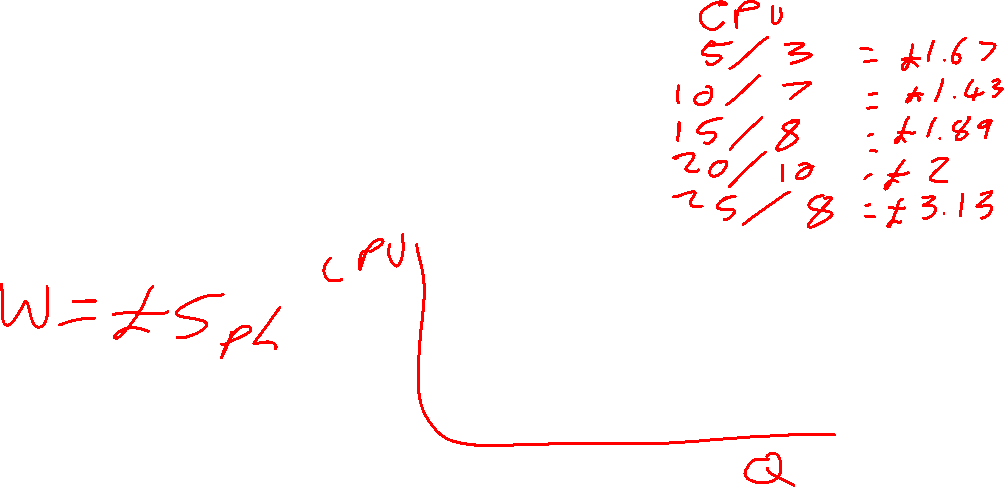 CPU
5/3 = £1.67
10/7 = £1.43
15/8 = £1.89
20/10 = £2
25/8 = £3.13
CPU
W=£5ph
Q